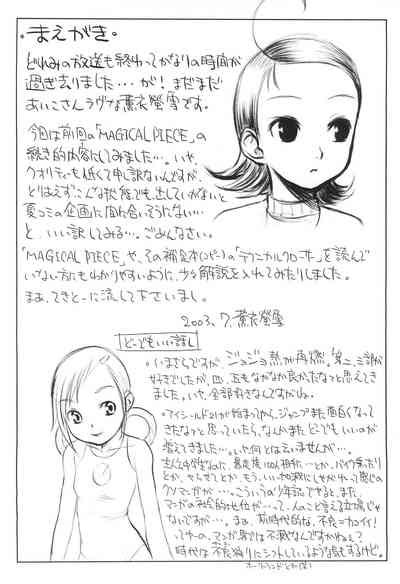 ・まえがき・
どれみの放送も終わってかなりの時間が
過ぎ去りました…が！まだまだ
あいこさんラヴな薫衣螢雪です。
今回は前回の「MAGICAL PIECE」の
続き的内容にしてみました…。いや、
クオリティーも低くて申し訳ないんですが、
とりあえずこんな状態でも出していかないと
夏コミの企画に間に合いそうにない…
と、いい訳してみる…。ごめんなさい。
「MAGICAL PIECE」や、その補足本(コピー)の「テクニカルクローサー」を読んで
いない方にもわかりやすいように、少々解説を入れてみたりしました。
まあ、てきとーに流して下さいまし。
2003,7.薫衣螢雪
どーでもいい話し
・いまさらですが、ジョジョ熱が再燃。第二、三部が
好きでしたが、四、五もなかなか良かったなーと思えてき
ました。いて、全部好きなんですがね。
・アイシールド21が始まってから、ジャンプまた面白くなって
きたなーと思っていたら、なんかまたどーでもいいのが
増えてきました…。いや何とは言いませんが…。
マンガの社会的地位が…って、一人のこと言える立場じゃ
ないですが…。まあ、前時代的な、不良=カッコイイ！
ってゆーの、マンガ界では不滅なんですかねえ？